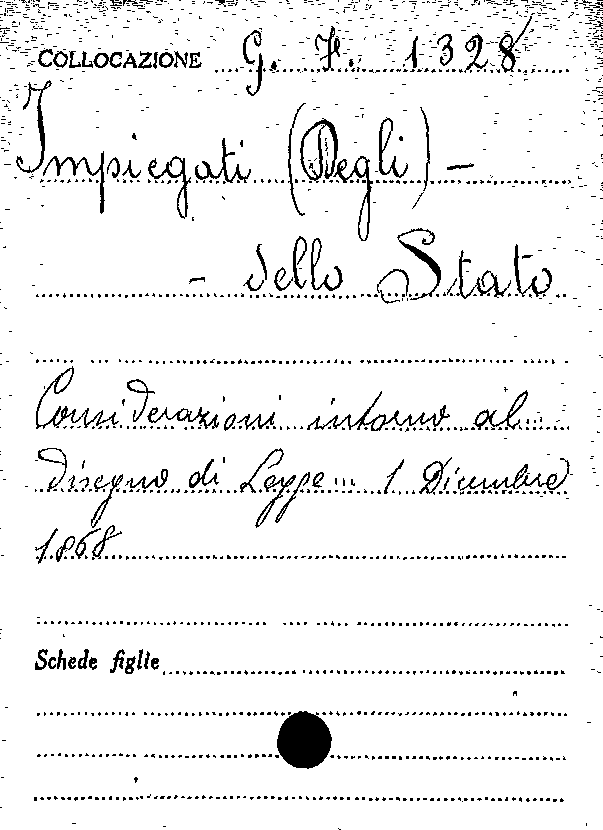 COLLOCAZIONE G. F. 1328
Impiegati (Degli) -
- dello Stato
Considerazioni intorno al
disegno di Legge... 1 Dicembre
1868
Schede figlie